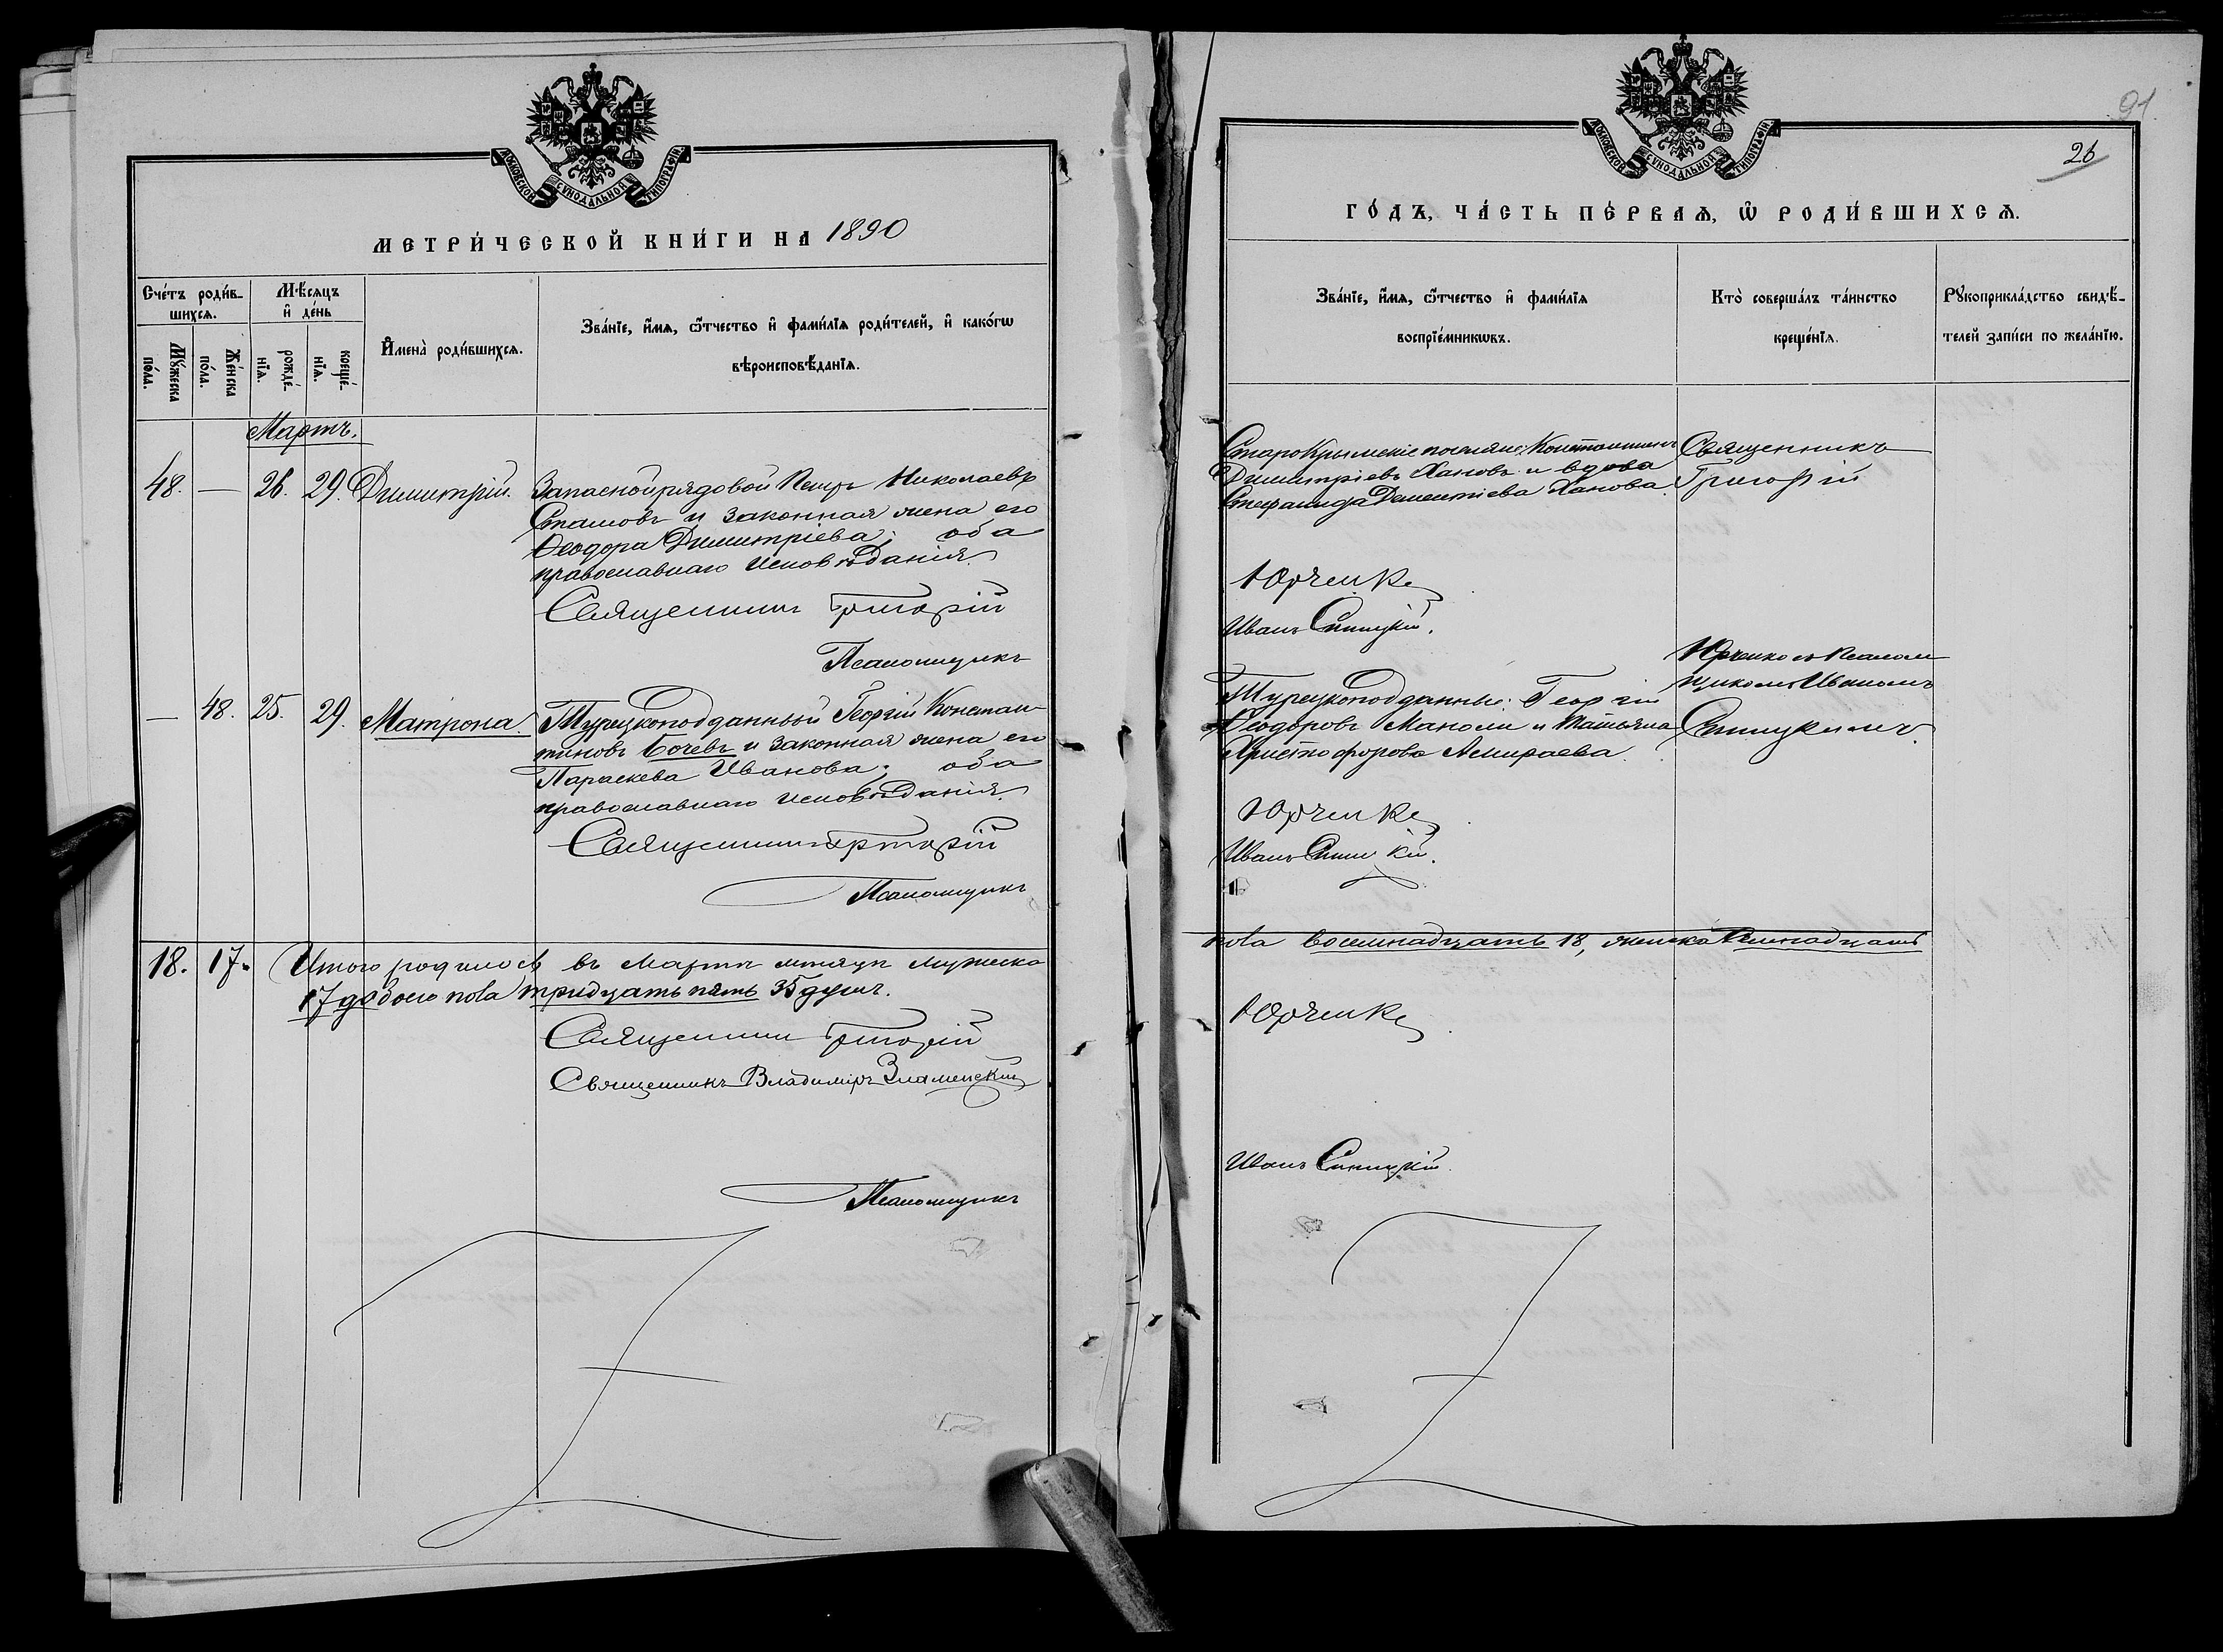 МОСКОВСКОЙ СѴНОДАЛЬНОЙ ТИПОГРАФІИ
МЕТРИ́ЧЕСКОЙ КНИ́ГИ НА 1890
Сче́тъ роди́в-
шихсѧ.
Мѣ́сяцъ
и҆ де́нь
Мꙋ́жеска
по́ла.
Же́нска
по́ла.
рожде́-
нїѧ.
креще́-
нїѧ.
И҆мена̀ роди́вшихсѧ.
Зва́нїе, и҆́мѧ, ѻ҆́тчество и҆ фами́лїѧ роди́телей, и҆ како́гѡ
вѣроисповѣ́данїѧ.
Мартъ.
48. — 26. 29. Димитрій.
Запасной рядовой Петръ Николаевъ
Стамовъ и законная жена его
Ѳеодора Димитріева; оба
православнаго исповѣданія.
Священникъ Григорій
Псаломщикъ
— 48. 25. 29. Матрона.
Турецкоподданный Георгій Констан-
тиновъ Бочевъ и законная жена его
Параскева Иванова; оба
православнаго исповѣданія.
Священникъ Григорій
Псаломщикъ
18. 17. Итого родилось въ Мартѣ мѣсяцѣ мужеска
17 а обоего пола тридцать пять 35 душъ.
Священникъ Григорій
Священникъ Владиміръ Знаменскій
Псаломщикъ
МОСКОВСКОЙ СѴНОДАЛЬНОЙ ТИПОГРАФІИ
91
26
ГО́ДЪ, ЧА́СТЬ ПЕ́РВАѦ, Ѡ҆ РОДИ́ВШИХСѦ.
Зва́нїе, и҆́мѧ, ѻ҆́тчество и҆ фами́лїѧ
воспрїе́мникѡвъ.
Кто̀ соверша́лъ та́инство
креще́нїѧ.
Рꙋкоприкла́дство свидѣ́-
телей за́писи по жела́нїю.
Старокрымскіе поселяне: Константинъ
Димитріевъ Хановъ и вдова
Стефанида Дементіева Ханова.
Священникъ
Григорій
Юрченко
Иванъ Синицкій.
Юрченко съ Псалом
щикомъ Иваномъ
Синицкимъ.
Турецкоподданные: Георгій
Ѳеодоровъ Маноли и Татьяна
Христофорова Амираева.
Юрченко
Иванъ Синицкій.
пола восемнадцать 18, женска семнадцать
Юрченко
Иванъ Синицкій.